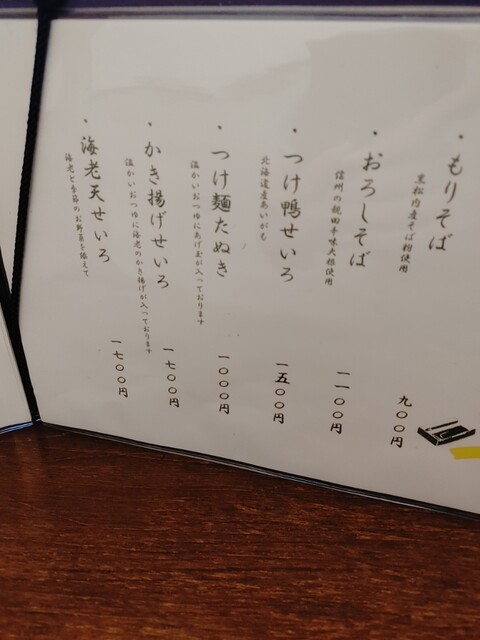 ・もりそば
黒松内産そば粉使用
九〇〇円
・おろしそば
信州の親田辛味大根使用
一一〇〇円
・つけ鴨せいろ
北海道産あいがも
一五〇〇円
・つけ麺たぬき
温かいおつゆにあげ玉が入っております
一〇〇〇円
・かき揚げせいろ
温かいおつゆに海老のかき揚げが入っております
一七〇〇円
・海老天せいろ
海老と季節のお野菜を添えて
一七〇〇円